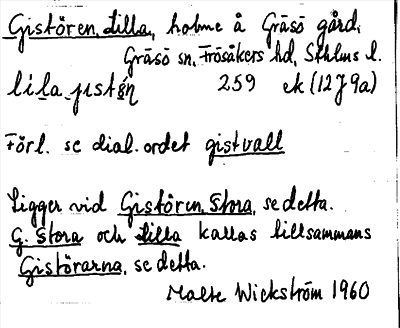 Gistören, Lilla, holme å Gräsö gård,
Gräsö sn, Frösåkers hd, Sthlms l.
259 ek (12J9a)
Förl. se dial. ordet gistvall
Ligger vid Gistören, Stora, se detta.
G. Stora och Lilla kallas tillsammans
Gistörarna, se detta.
Malte Wickström 1960